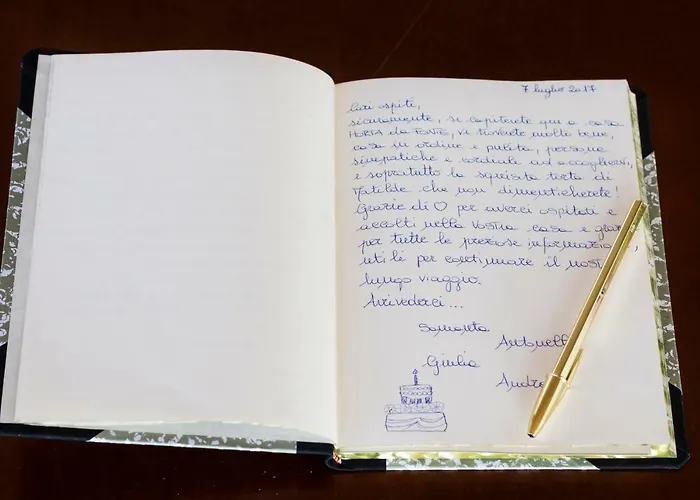 7 luglio 2017
Cari ospiti,
sicuramente, se capiterete qui a casa
HORTA da FONTE, vi troverete molto bene,
casa in ordine e pulita, persone
simpatiche e cordiali ad accogliervi,
e sopratutto la squisita torta di
Matilde che non dimenticherete!
Grazie di ♡ per averci ospitati e
accolti nella vostra casa e
per tutte le preziose
utili per continuare il
lungo viaggio.
Arrivederci...
Samanta
Giulia